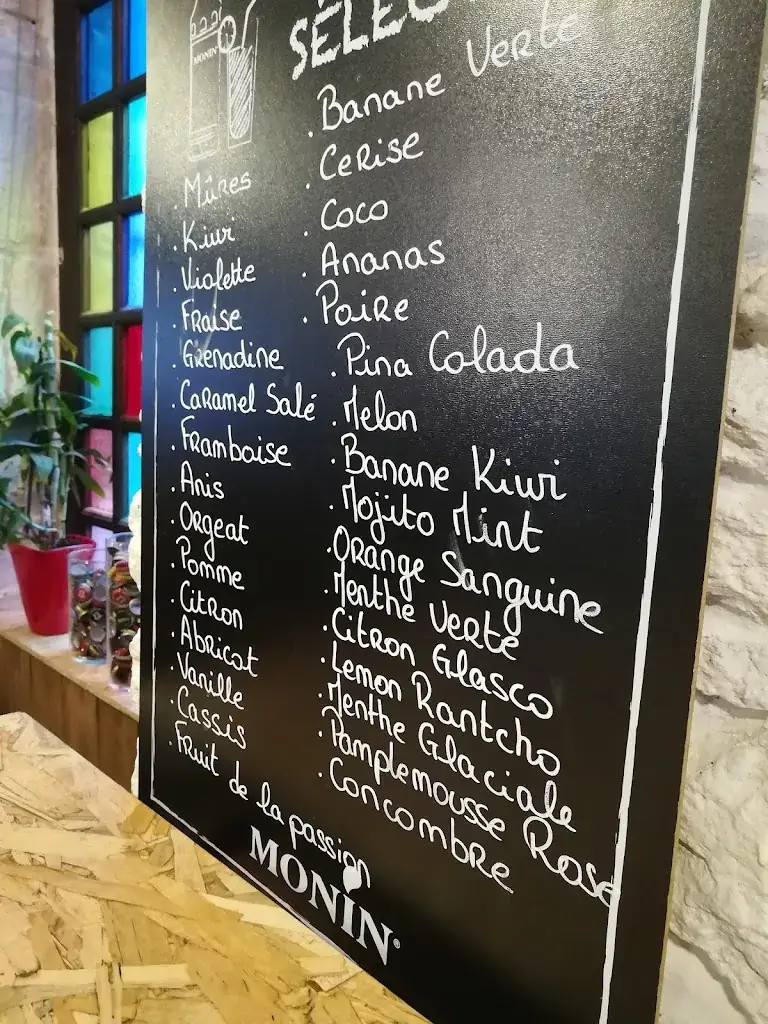 MONIN
SÉLEC
Mûres
Kiwi
Violette
Fraise
Grenadine
Caramel Salé
Framboise
Anis
Orgeat
Pomme
Citron
Abricot
Vanille
Cassis
Fruit de la passion
Banane Verte
Cerise
Coco
Ananas
Poire
Pina Colada
Melon
Banane Kiwi
Mojito Mint
Orange Sanguine
Menthe Verte
Citron Glasco
Lemon Rantcho
Menthe Glaciale
Pamplemousse Rose
Concombre
MONIN®